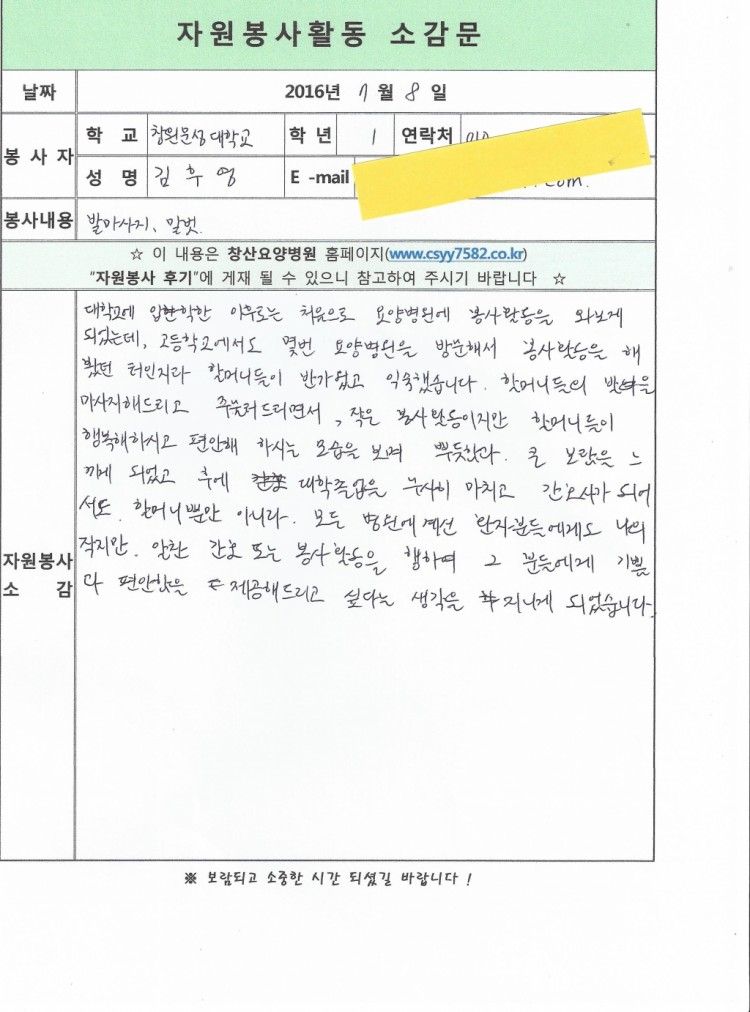 자원봉사활동 소감문
날짜 2016년 7 월 8 일
봉사자 학교 창원문성대학교 학년 1 연락처 010
성명 김후영 E -mail .com.
봉사내용 발마사지, 말벗.
☆ 이 내용은 창산요양병원 홈페이지(www.csyy7582.co.kr)
"자원봉사 후기"에 게재 될 수 있으니 참고하여 주시기 바랍니다 ☆
자원봉사 소감
대학교에 입학한 이후로는 처음으로 요양병원에 봉사활동을 와보게
되었는데, 고등학교에서도 몇번 요양병원을 방문해서 봉사활동을 해
봤던 터인지라 할머니들이 반가웠고 익숙했습니다. 할머니들의 발을
마사지해드리고 주물러드리면서, 작은 봉사활동이지만 할머니들이
행복해하시고 편안해 하시는 모습을 보며 뿌듯했다. 큰 보람을 느
끼게 되었고 후에 대학졸업을 무사히 마치고 간호사가 되어
서도 할머니뿐만 아니라. 모든 병원에계신 환자분들에게도 나의
작지만. 알찬 간호 또는 봉사활동을 행하여 그 분들에게 기쁨
과 편안함을 제공해드리고 싶다는 생각을 지니게 되었습니다.
※ 보람되고 소중한 시간 되셨길 바랍니다 !